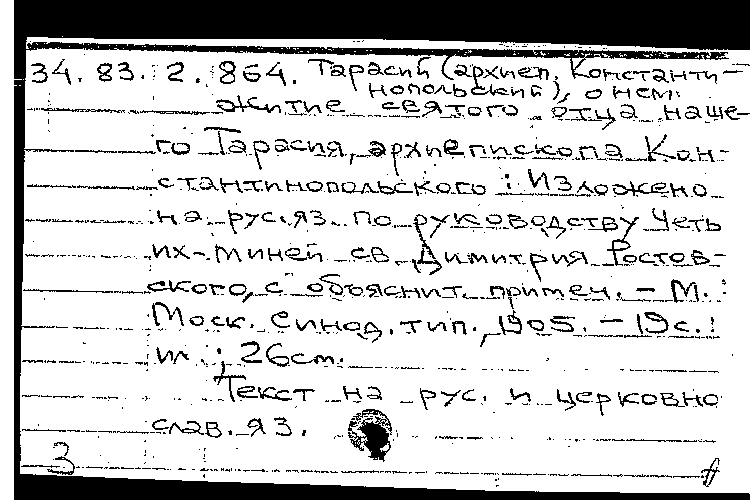 34.83.2.864. Тарасий (архиеп. Константи-
нопольский), о нем:
Житие святого отца наше-
го Тарасия, архиепископа Кон-
стантинопольского : Изложено
на рус.яз. по руководству Четь
их-миней св. Димитрия Ростов-
ского, с объяснит. примеч. - М. :
Моск. синод. тип., 1905. - 19с. :
ил. ; 26см.
Текст на рус. и церковно
слав. яз.
3